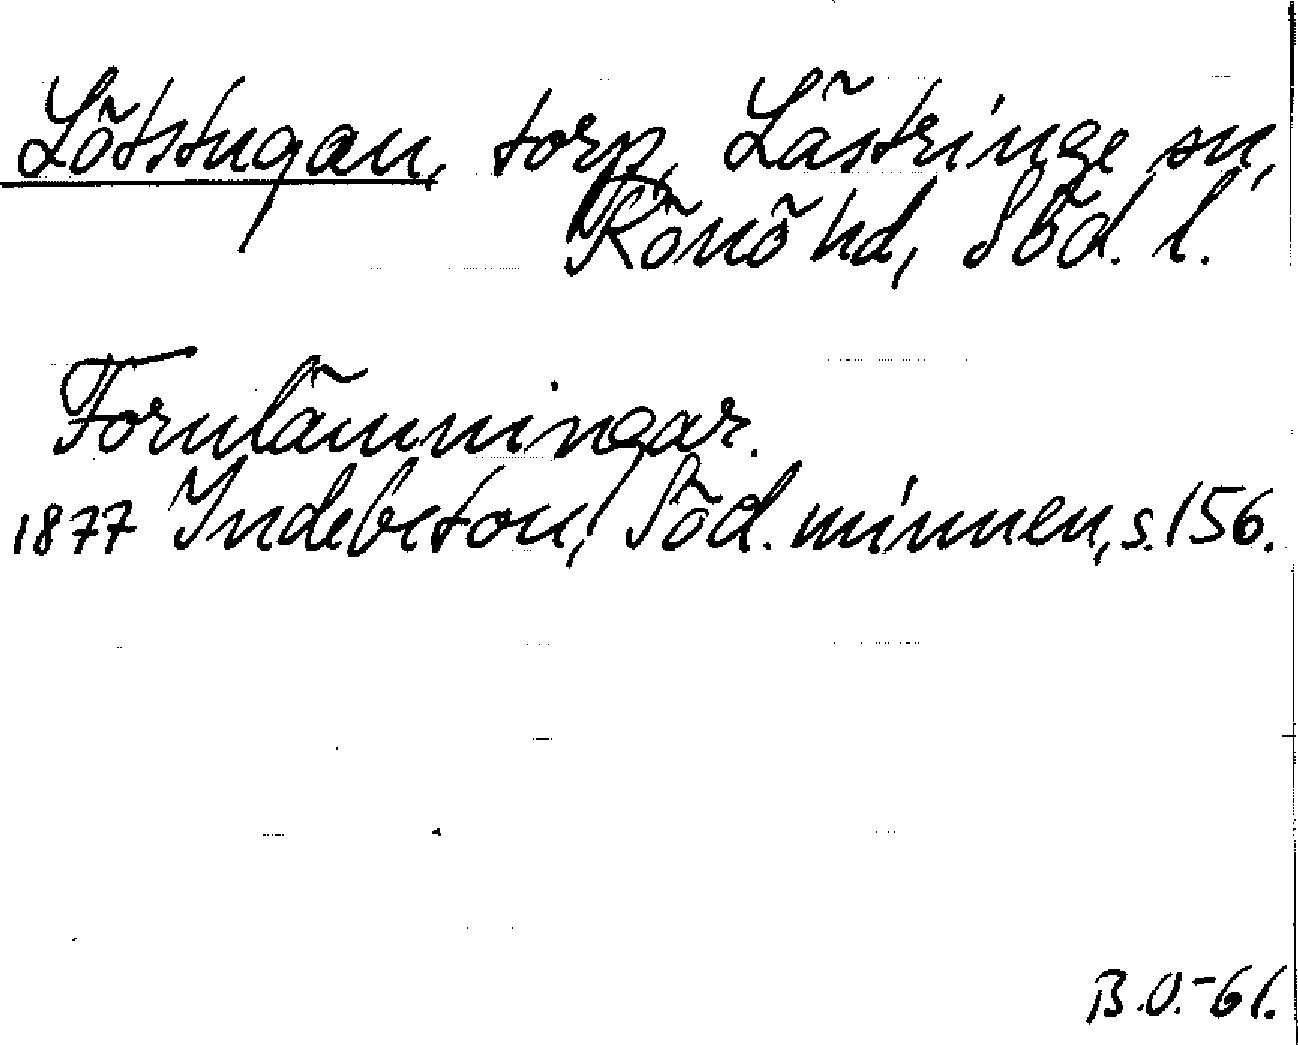 Lötstugan, torp, Lästringe sn,
Rönö hd, Söd. l.
Fornlämningar.
1877 Indebetou, Söd. minnen, s. 156.
B.O.-61.